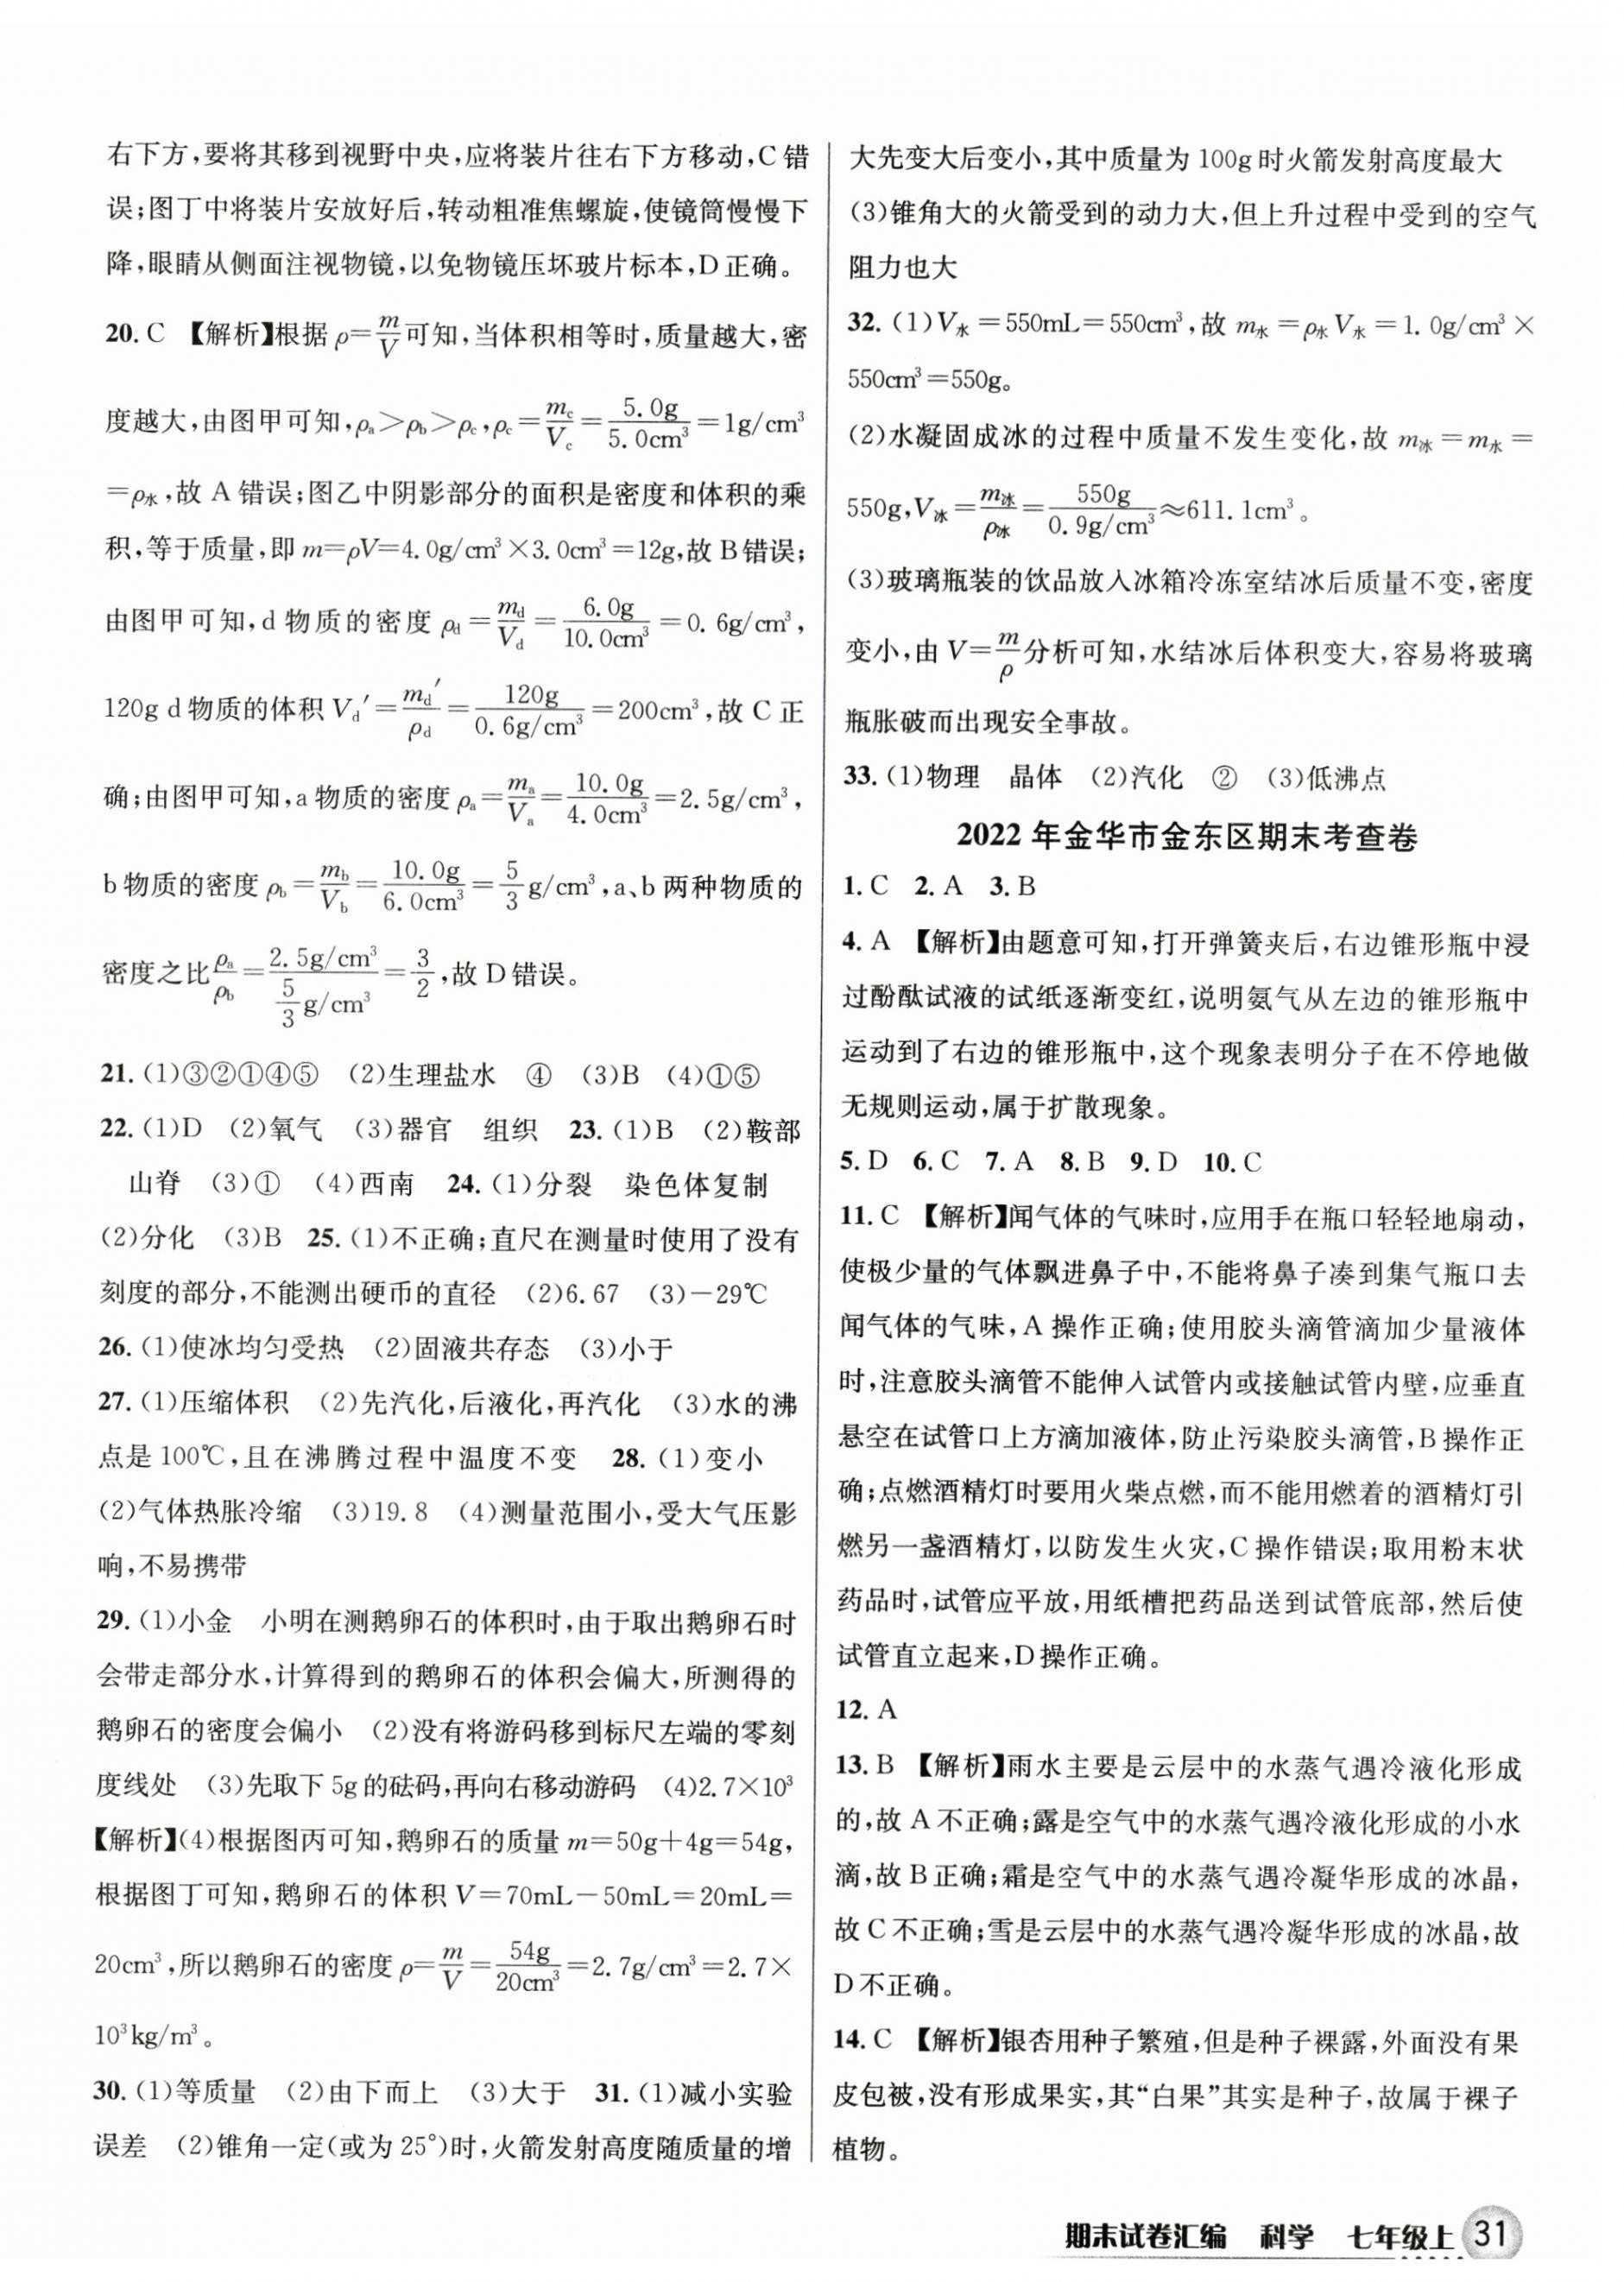 右下方,要将其移到视野中央,应将装片往右下方移动,C错
误;图丁中将装片安放好后,转动粗准焦螺旋,使镜筒慢慢下
降,眼睛从侧面注视物镜,以免物镜压坏玻片标本,D正确。
20. C 【解析】根据 ρ=m/V可知,当体积相等时,质量越大,密
度越大,由图甲可知,ρa>ρb>ρc,ρc=mc/Vc=5.0g/5.0cm³=1g/cm³
=ρ水,故 A 错误;图乙中阴影部分的面积是密度和体积的乘
积,等于质量,即 m=ρV=4.0g/cm³×3.0cm³=12g,故 B错误;
由图甲可知,d 物质的密度 ρd=md/Vd=6.0g/10.0cm³=0.6g/cm³,
120g d物质的体积 Vd′=md′/ρd=120g/0.6g/cm³=200cm³,故 C 正
确;由图甲可知,a物质的密度 ρa=ma/Va=10.0g/4.0cm³=2.5g/cm³,
b物质的密度 ρb=mb/Vb=10.0g/6.0cm³=5/3 g/cm³,a、b两种物质的
密度之比ρa/ρb=2.5g/cm³/(5/3 g/cm³)=3/2,故 D错误。
21. (1)③②①④⑤ (2)生理盐水 ④ (3)B (4)①⑤
22. (1)D (2)氧气 (3)器官 组织 23. (1)B (2)鞍部
山脊 (3)① (4)西南 24. (1)分裂 染色体复制
(2)分化 (3)B 25. (1)不正确;直尺在测量时使用了没有
刻度的部分,不能测出硬币的直径 (2)6.67 (3)-29℃
26. (1)使冰均匀受热 (2)固液共存态 (3)小于
27. (1)压缩体积 (2)先汽化,后液化,再汽化 (3)水的沸
点是 100℃,且在沸腾过程中温度不变 28. (1)变小
(2)气体热胀冷缩 (3)19.8 (4)测量范围小,受大气压影
响,不易携带
29. (1)小金 小明在测鹅卵石的体积时,由于取出鹅卵石时
会带走部分水,计算得到的鹅卵石的体积会偏大,所测得的
鹅卵石的密度会偏小 (2)没有将游码移到标尺左端的零刻
度线处 (3)先取下 5g的砝码,再向右移动游码 (4)2.7×10³
【解析】(4)根据图丙可知,鹅卵石的质量 m=50g+4g=54g,
根据图丁可知,鹅卵石的体积 V=70mL-50mL=20mL=
20cm³,所以鹅卵石的密度 ρ=m/V=54g/20cm³=2.7g/cm³=2.7×
10³kg/m³。
30. (1)等质量 (2)由下而上 (3)大于 31. (1)减小实验
误差 (2)锥角一定(或为 25°)时,火箭发射高度随质量的增
大先变大后变小,其中质量为 100g时火箭发射高度最大
(3)锥角大的火箭受到的动力大,但上升过程中受到的空气
阻力也大
32. (1)V水=550mL=550cm³,故 m水=ρ水V水=1.0g/cm³×
550cm³=550g。
(2)水凝固成冰的过程中质量不发生变化,故 m冰=m水=
550g,V冰=m冰/ρ冰=550g/0.9g/cm³≈611.1cm³。
(3)玻璃瓶装的饮品放入冰箱冷冻室结冰后质量不变,密度
变小,由 V=m/ρ分析可知,水结冰后体积变大,容易将玻璃
瓶胀破而出现安全事故。
33. (1)物理 晶体 (2)汽化 ② (3)低沸点
2022 年金华市金东区期末考查卷
1. C 2. A 3. B
4. A 【解析】由题意可知,打开弹簧夹后,右边锥形瓶中浸
过酚酞试液的试纸逐渐变红,说明氨气从左边的锥形瓶中
运动到了右边的锥形瓶中,这个现象表明分子在不停地做
无规则运动,属于扩散现象。
5. D 6. C 7. A 8. B 9. D 10. C
11. C 【解析】闻气体的气味时,应用手在瓶口轻轻地扇动,
使极少量的气体飘进鼻子中,不能将鼻子凑到集气瓶口去
闻气体的气味,A 操作正确;使用胶头滴管滴加少量液体
时,注意胶头滴管不能伸入试管内或接触试管内壁,应垂直
悬空在试管口上方滴加液体,防止污染胶头滴管,B操作正
确;点燃酒精灯时要用火柴点燃,而不能用燃着的酒精灯引
燃另一盏酒精灯,以防发生火灾,C操作错误;取用粉末状
药品时,试管应平放,用纸槽把药品送到试管底部,然后使
试管直立起来,D操作正确。
12. A
13. B 【解析】雨水主要是云层中的水蒸气遇冷液化形成
的,故 A不正确;露是空气中的水蒸气遇冷液化形成的小水
滴,故 B正确;霜是空气中的水蒸气遇冷凝华形成的冰晶,
故 C不正确;雪是云层中的水蒸气遇冷凝华形成的冰晶,故
D不正确。
14. C 【解析】银杏用种子繁殖,但是种子裸露,外面没有果
皮包被,没有形成果实,其“白果”其实是种子,故属于裸子
植物。
期末试卷汇编 科学 七年级上 31